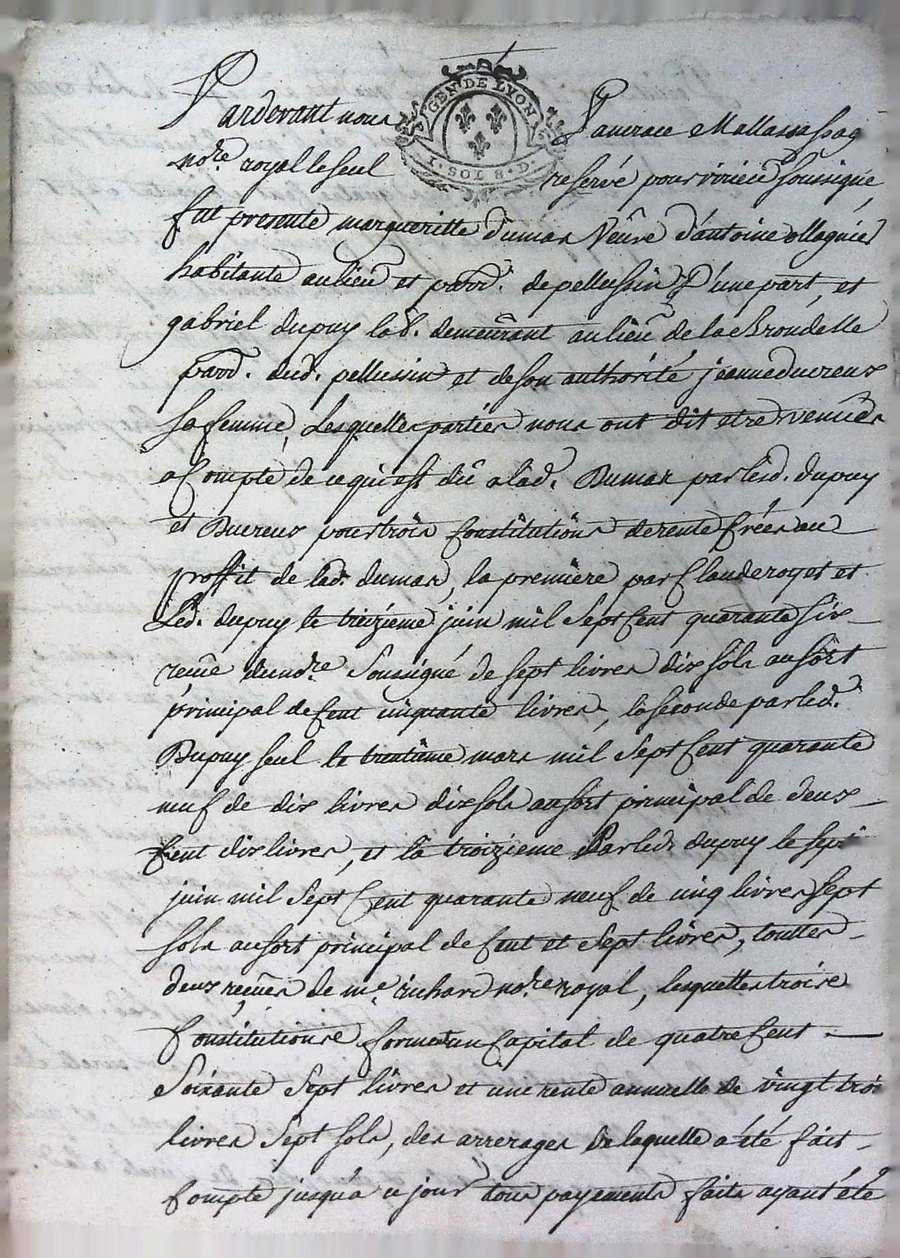 GEN. DE LYON
1. SOL 8. D.
Pardevant nous Pancrace Mallassagny
no.re royal le seul reservé pour virieu soussigné,
fut presente margueritte dumas veuve d'antoine ollagnier
habitante au lieu et parr. de pellussin d'une part, et
gabriel dupuy lab. demeurant au lieu de la
parr. dud. pellussin et de son authorité jeanne ducreux
sa femme, Lesquelles parties nous ont dit etre venües
a Compte de ce qui est dû a lad. Dumas par lesd. dupuy
et Ducreux pour trois Constitutions de rente Créés au
proffit de lad. dumas, la premiere par Claude royet et
Led. dupuy le treizieme juin mil sept Cent quarante six
reçüe dud. no.re soussigné de sept livres dix sols au sort
principal de Cent cinquante livres, la seconde par led.
Dupuy seul le trentième mars mil sept Cent quarante
neuf de dix livres dix sols au sort principal de deux
Cent dix livres, et la troizieme Par led. dupuy le sept
juin mil sept Cent quarante neuf de cinq livres sept
sols au sort principal de Cent et sept livres, touttes
deux reçües de m.e richard no.re royal, lesquelles trois
Constitutions forment un Capital de quatre Cent
soixante sept livres et une rente annuelle de vingt trois
livres sept sols, des arrerages de laquelle a été fait
Compte jusqu'a ce jour tous payements faits ayant été